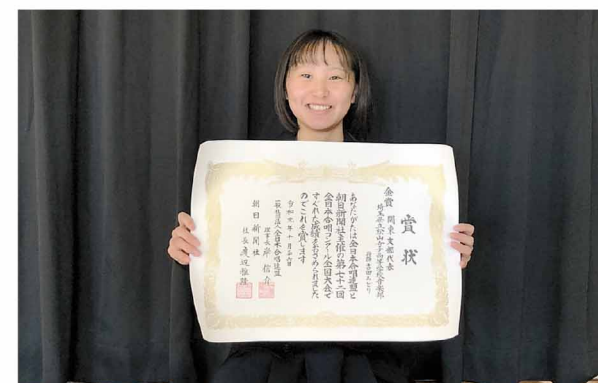 賞状
金賞 関東支部代表
あなたがたは全日本合唱連盟と
朝日新聞社主催の第七十二回
全日本合唱コンクール全国大会で
すぐれた成績をおさめられました
のでこれを賞します
令和元年十月二十六日
一般社団法人全日本合唱連盟
理事長 岸 信介
朝日新聞社
社長 渡辺雅隆